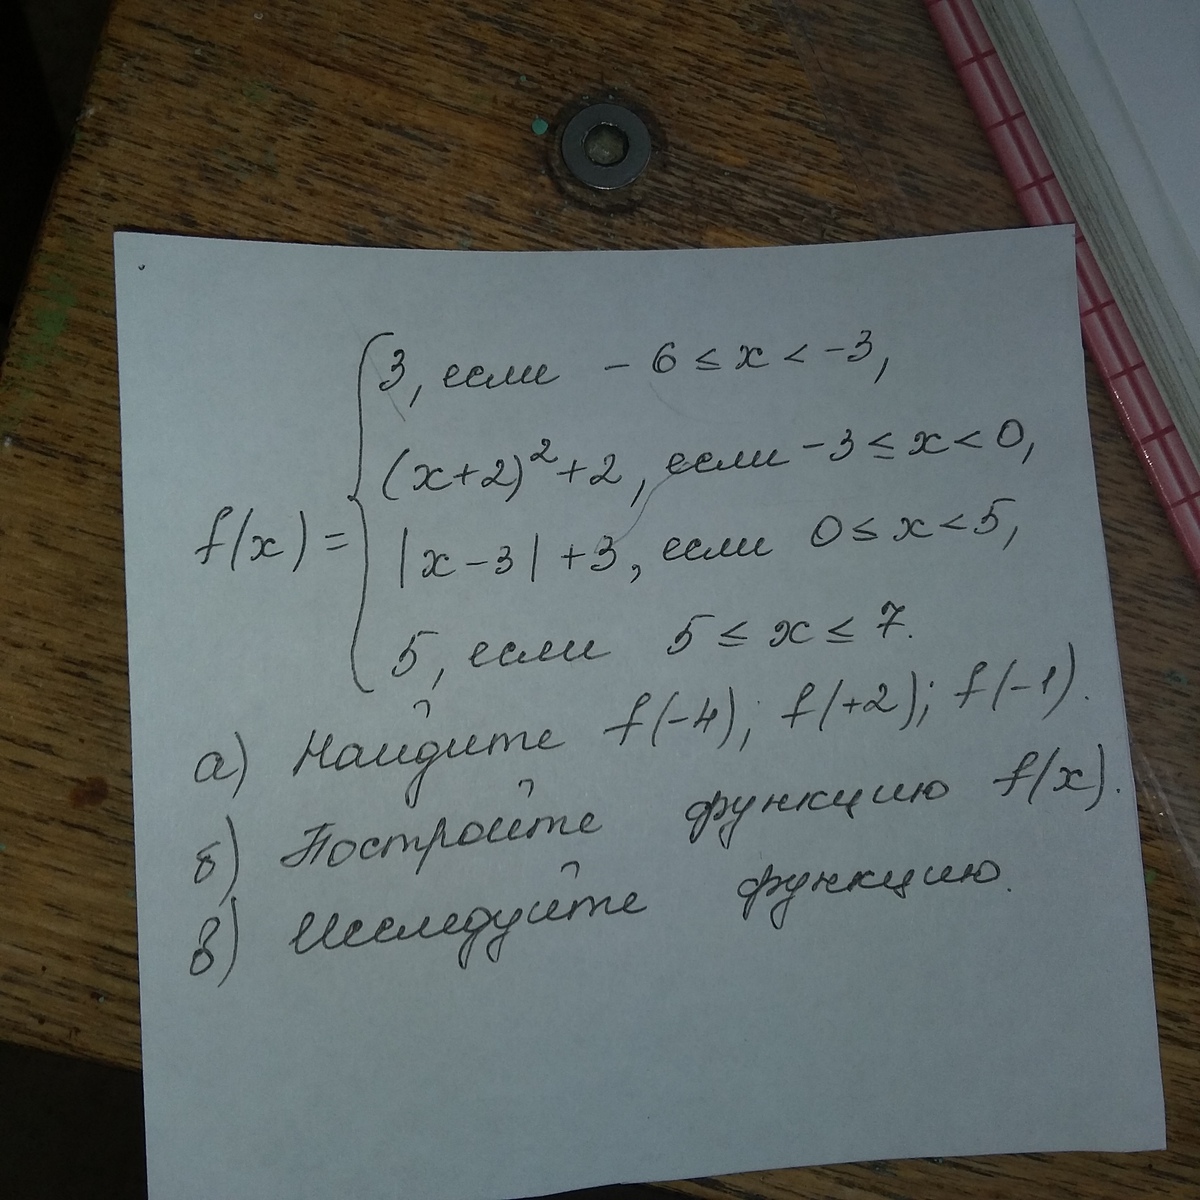 3, если - 6 ≤ x < -3,
(x+2)² + 2, если -3 ≤ x < 0,
f(x) =
|x-3| + 3, если 0 ≤ x < 5,
5, если 5 ≤ x ≤ 7.
а) Найдите f(-4); f(+2); f(-1).
б) Постройте функцию f(x).
в) Исследуйте функцию.